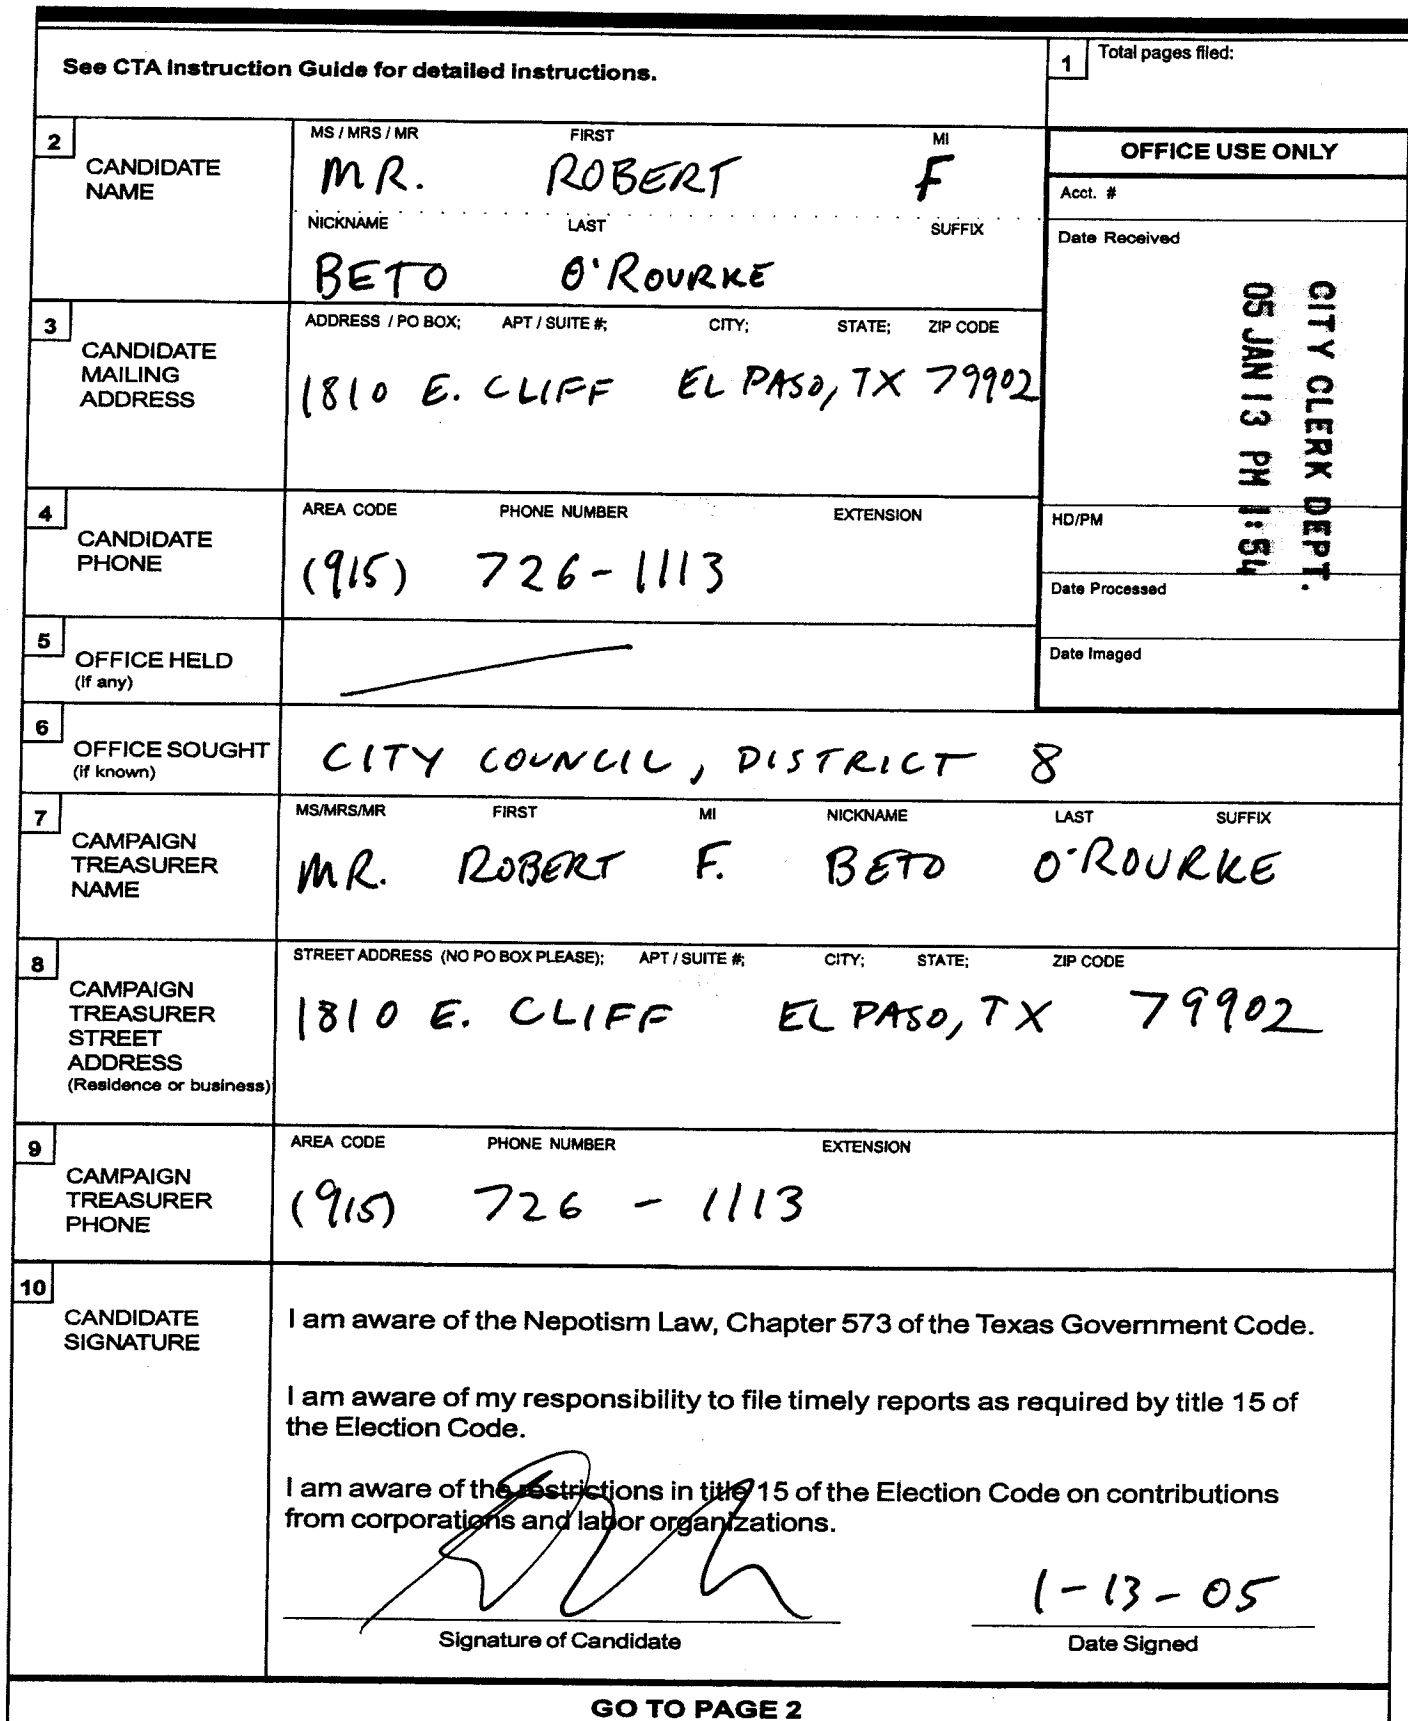 See CTA Instruction Guide for detailed instructions.
1 Total pages filed:
2 CANDIDATE NAME
MS / MRS / MR FIRST MI
MR. ROBERT F
NICKNAME LAST SUFFIX
BETO O'ROURKE
OFFICE USE ONLY
Acct. #
Date Received
CITY CLERK DEPT.
05 JAN 13 PM 1:54
HD/PM
Date Processed
Date Imaged
3 CANDIDATE MAILING ADDRESS
ADDRESS / PO BOX; APT / SUITE #; CITY; STATE; ZIP CODE
1810 E. CLIFF EL PASO, TX 79902
4 CANDIDATE PHONE
AREA CODE PHONE NUMBER EXTENSION
(915) 726-1113
5 OFFICE HELD
(if any)
6 OFFICE SOUGHT
(if known)
CITY COUNCIL, DISTRICT 8
7 CAMPAIGN TREASURER NAME
MS/MRS/MR FIRST MI NICKNAME LAST SUFFIX
MR. ROBERT F. BETO O'ROURKE
8 CAMPAIGN TREASURER STREET ADDRESS
(Residence or business)
STREET ADDRESS (NO PO BOX PLEASE); APT / SUITE #; CITY; STATE; ZIP CODE
1810 E. CLIFF EL PASO, TX 79902
9 CAMPAIGN TREASURER PHONE
AREA CODE PHONE NUMBER EXTENSION
(915) 726 - 1113
10 CANDIDATE SIGNATURE
I am aware of the Nepotism Law, Chapter 573 of the Texas Government Code.
I am aware of my responsibility to file timely reports as required by title 15 of
the Election Code.
I am aware of the restrictions in title 15 of the Election Code on contributions
from corporations and labor organizations.
1-13-05
Signature of Candidate
Date Signed
GO TO PAGE 2